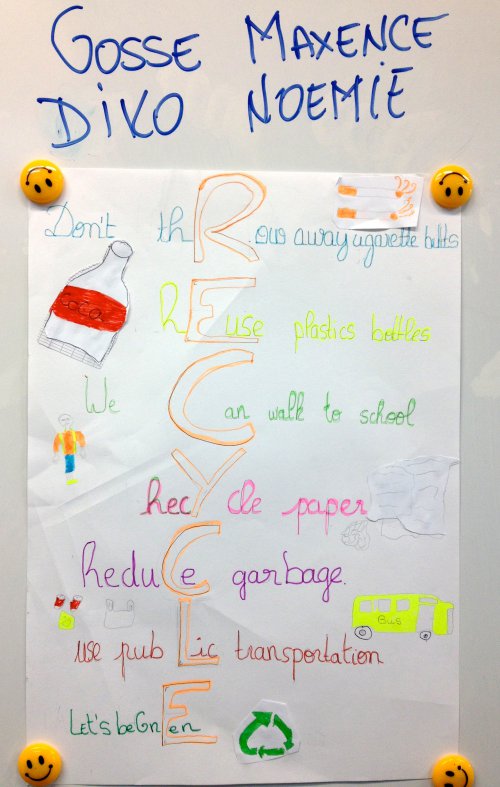 GOSSE MAXENCE
DIKO NOEMIE
Don't thRow away cigarette butts
Coca
REuse plastics bottles
We Can walk to school
RecYcle paper
ReduCe garbage.
BUS
use pubLic transportation
Let's be GrEen